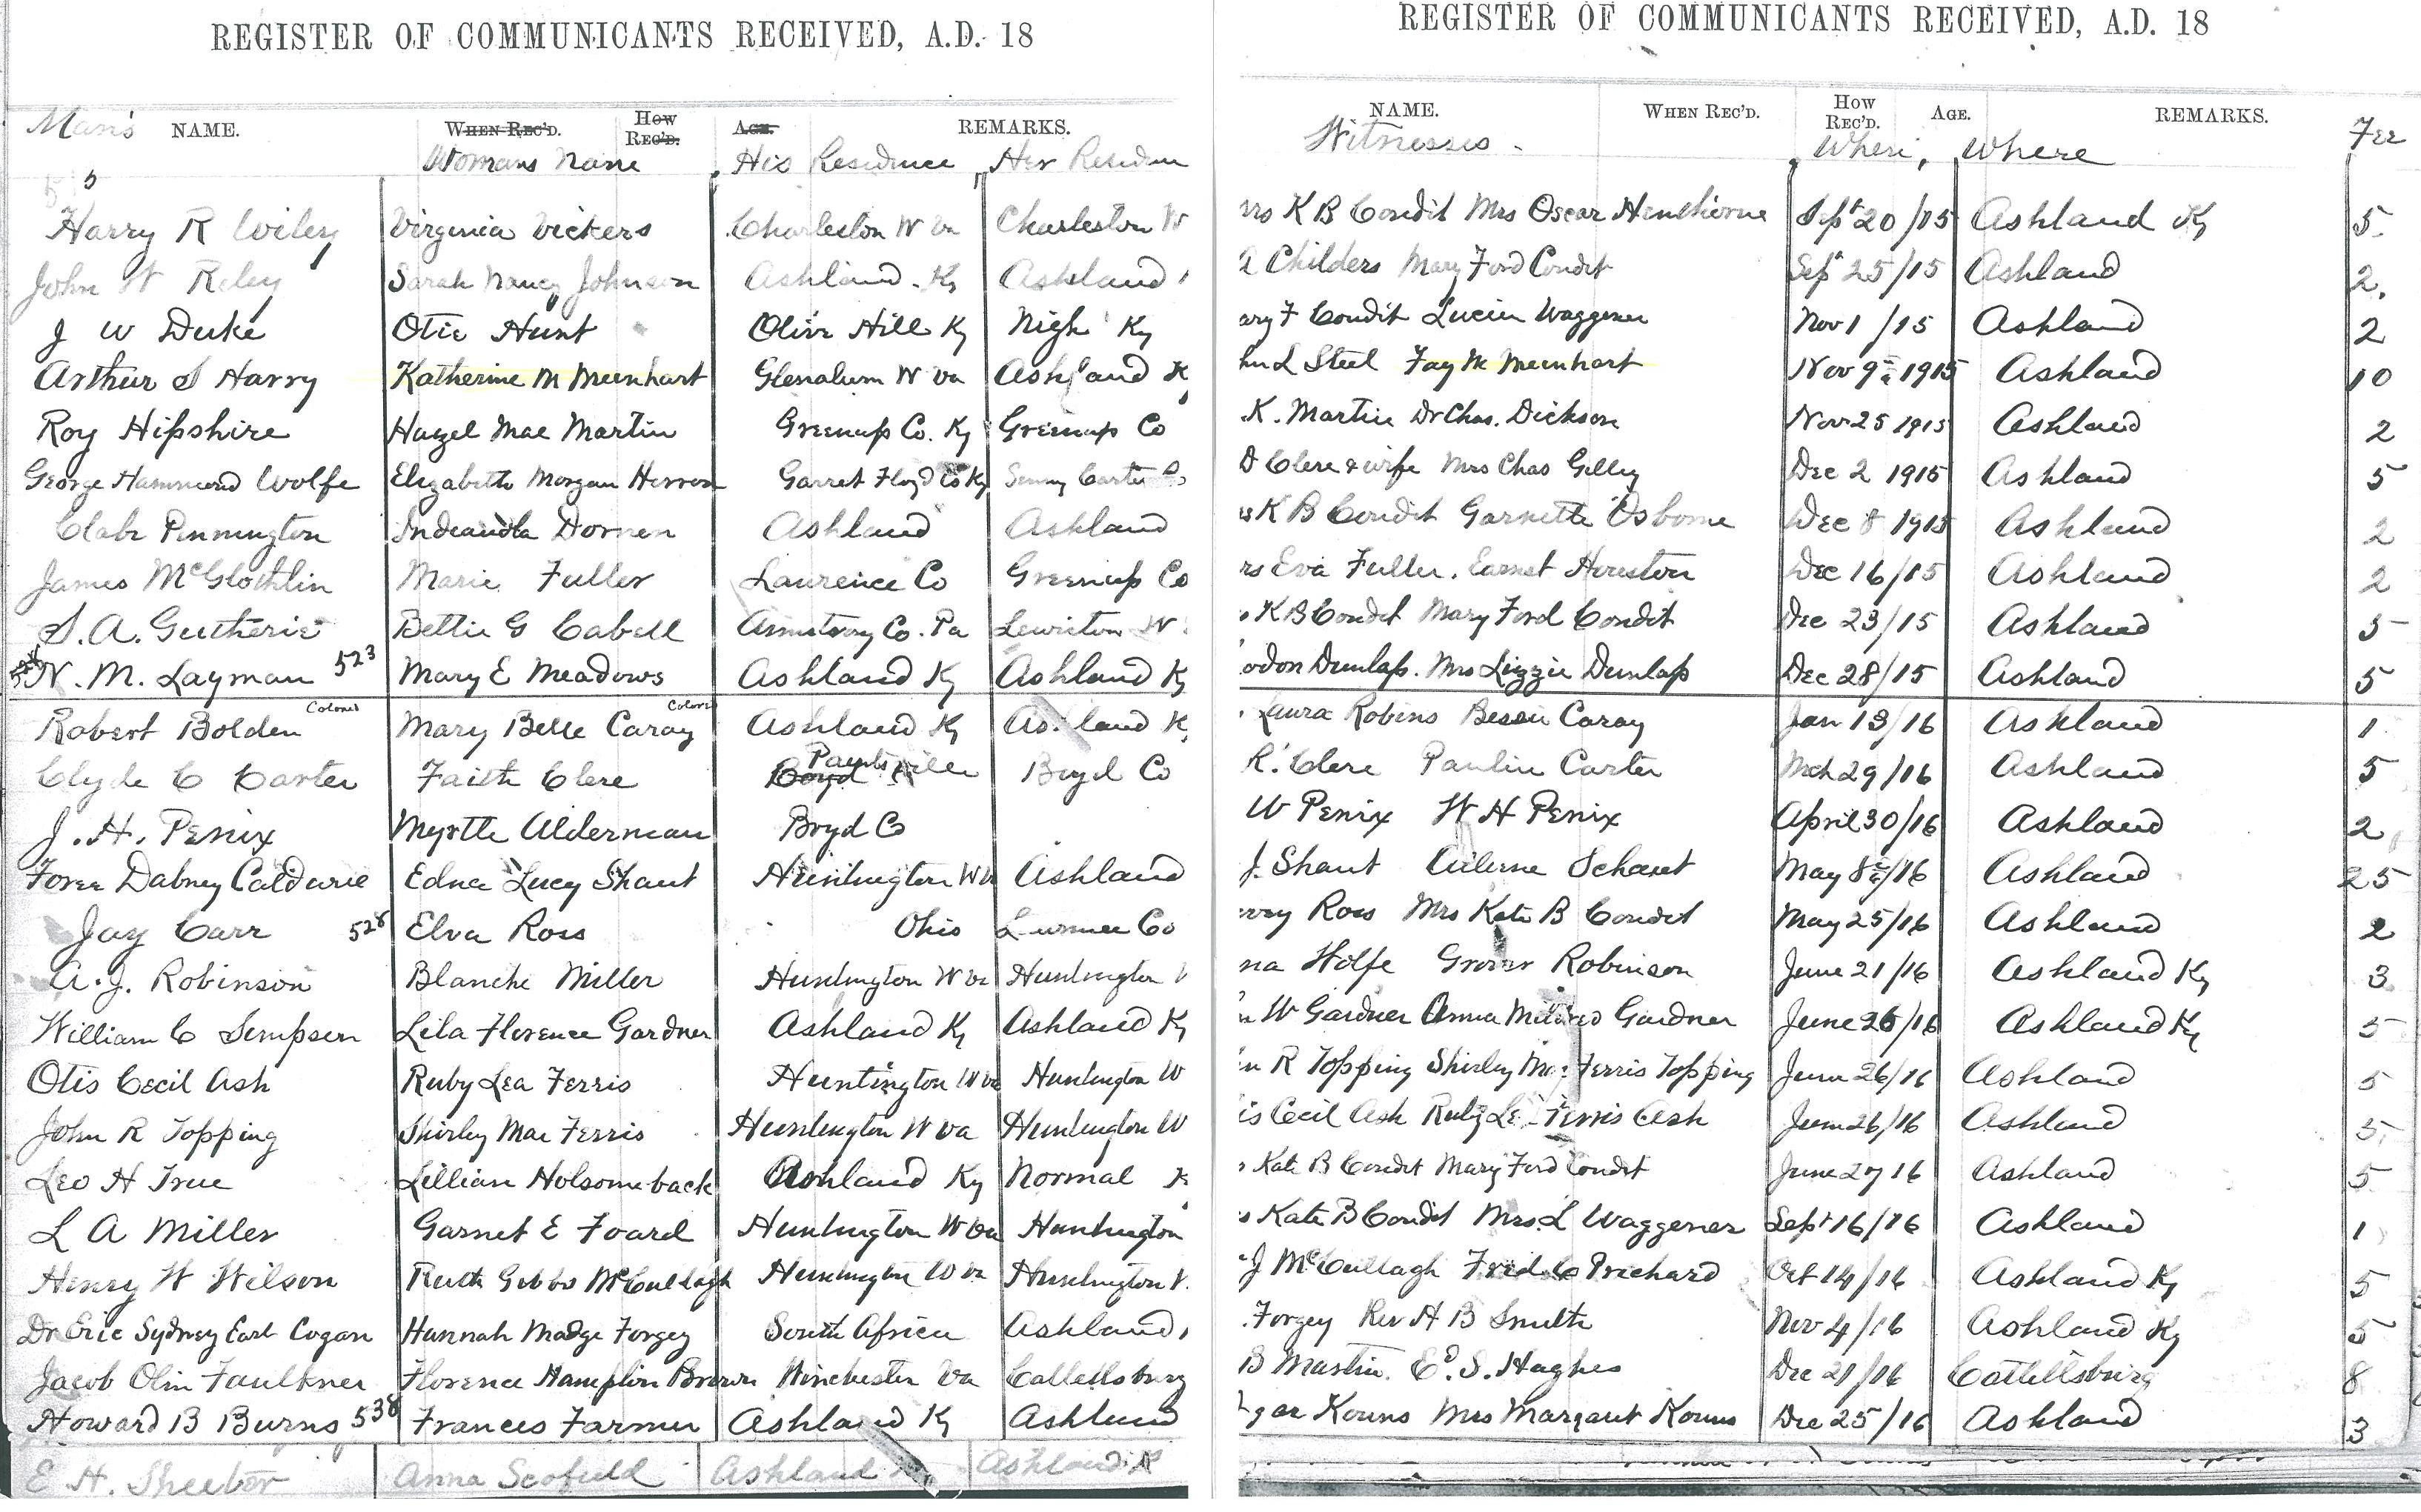 REGISTER OF COMMUNICANTS RECEIVED, A.D. 18
Man's NAME. WHEN REC'D. HOW REC'D. AGE. REMARKS.
Womans Name His Residence Her Residen
Harry R Wiley Virginia Vickers Charleston W Va Charleston W
John W Raley Sarah Nancy Johnson Ashland. Ky Ashland
J W Duke Otie Hunt Olive Hill Ky Nigh Ky
Arthur S Harry Katherine M Meinhart Glenalum W Va Ashland K
Roy Hipshire Hazel Mae Martin Greenup Co. Ky Greenup Co
George Hammond Wolfe Elizabeth Morgan Garret Floyd Co Ky Carter Co
Clabe Pennington Ashland Ashland
James McGlothlin Marie Fuller Laurence Co Greenup Co
S. A. Gutherie Bettie G Cabell Armstrong Co. Pa Lewiston W
N. M. Layman 523 Mary E Meadows Ashland Ky Ashland Ky
Robert Bolden Colored Mary Belle Caray Colore Ashland Ky Ashland K
Clyde C Carter Faith Clere Boyd Paintsville Boyd Co
J. H. Penix Myrtle Alderman Boyd Co
Dabney Edna Lucy Shaut Huntington W Va Ashland
Jay Carr 528 Elva Ross Ohio Co
A. J. Robinson Blanche Miller Huntington W Va Huntington
William C Simpson Lila Florence Gardner Ashland Ky Ashland Ky
Otis Cecil Ash Ruby Lea Ferris Huntington W Va Huntington W
John R Topping Shirley Mae Ferris Huntington W Va Huntington W
Leo H True Lillian Holsomeback Ashland Ky Normal K
L A Miller Garnet E Foard Huntington W Va Huntington
Henry W Wilson Ruth Gibbs McCullagh Huntington W Va Huntington
Dr Eric Sydney Earl Cogan Hannah Madge Forgey South Africa Ashland
Jacob Olin Faulkner Florence Hampton Brown Winchester Va Catlettsburg
Howard B Burns 538 Frances Farmer Ashland Ky Ashland
E H. Anna Scofield Ashland Ashland K
REGISTER OF COMMUNICANTS RECEIVED, A.D. 18
NAME. WHEN REC'D. HOW REC'D. AGE. REMARKS.
Witnesses. When, Where Fee
rs K B Condit Mrs Oscar Henthorne Sept 20/15 Ashland Ky 5.
Childers Mary Ford Condit Sept 25/15 Ashland 2.
ary F Condit Lucien Waggener Nov 1/15 Ashland 2
hn L Steel Fay M Meinhart Nov 9th 1915 Ashland 10
K. Martin Dr Chas. Dickson Nov 25 1915 Ashland 2
D Clere & wife Mrs Chas Gilley Dec 2 1915 Ashland 5
s K B Condit Garnette Osborne Dec 8 1915 Ashland 2
rs Eva Fuller. Earnest Houston Dec 16/15 Ashland 2
s K B Condit Mary Ford Condit Dec 23/15 Ashland 5
odon Dunlap. Mrs Lizzie Dunlap Dec 28/15 Ashland 5
Laura Robins Bessie Caray Jan 13/16 Ashland 1
R. Clere Pauline Carter Mch 29/16 Ashland 5
W Penix W H Penix April 30/16 Ashland 2
J. Shaut Schaut May 8th/16 Ashland 25
Ross Mrs Kate B Condit May 25/16 Ashland 2
na Wolfe Grover Robinson June 21/16 Ashland Ky 3
W Gardner Anna Mildred Gardner June 26/16 Ashland Ky 5
n R Topping Shirley Mae Ferris Topping June 26/16 Ashland 5
is Cecil Ash Ruby Le Ferris Ash June 26/16 Ashland 5
Kate B Condit Mary Ford Condit June 27 16 Ashland 5
s Kate B Condit Mrs. L Waggener Sept 16/16 Ashland 1
J McCullagh Fred C Prichard Oct 14/16 Ashland Ky 5
Forgey Rev H B Smith Nov 4/16 Ashland Ky 5
B Martin. E. S. Hughes Dec 21/16 Catlettsburg 8
gar Kouns Mrs Margaret Kouns Dec 25/16 Ashland 3